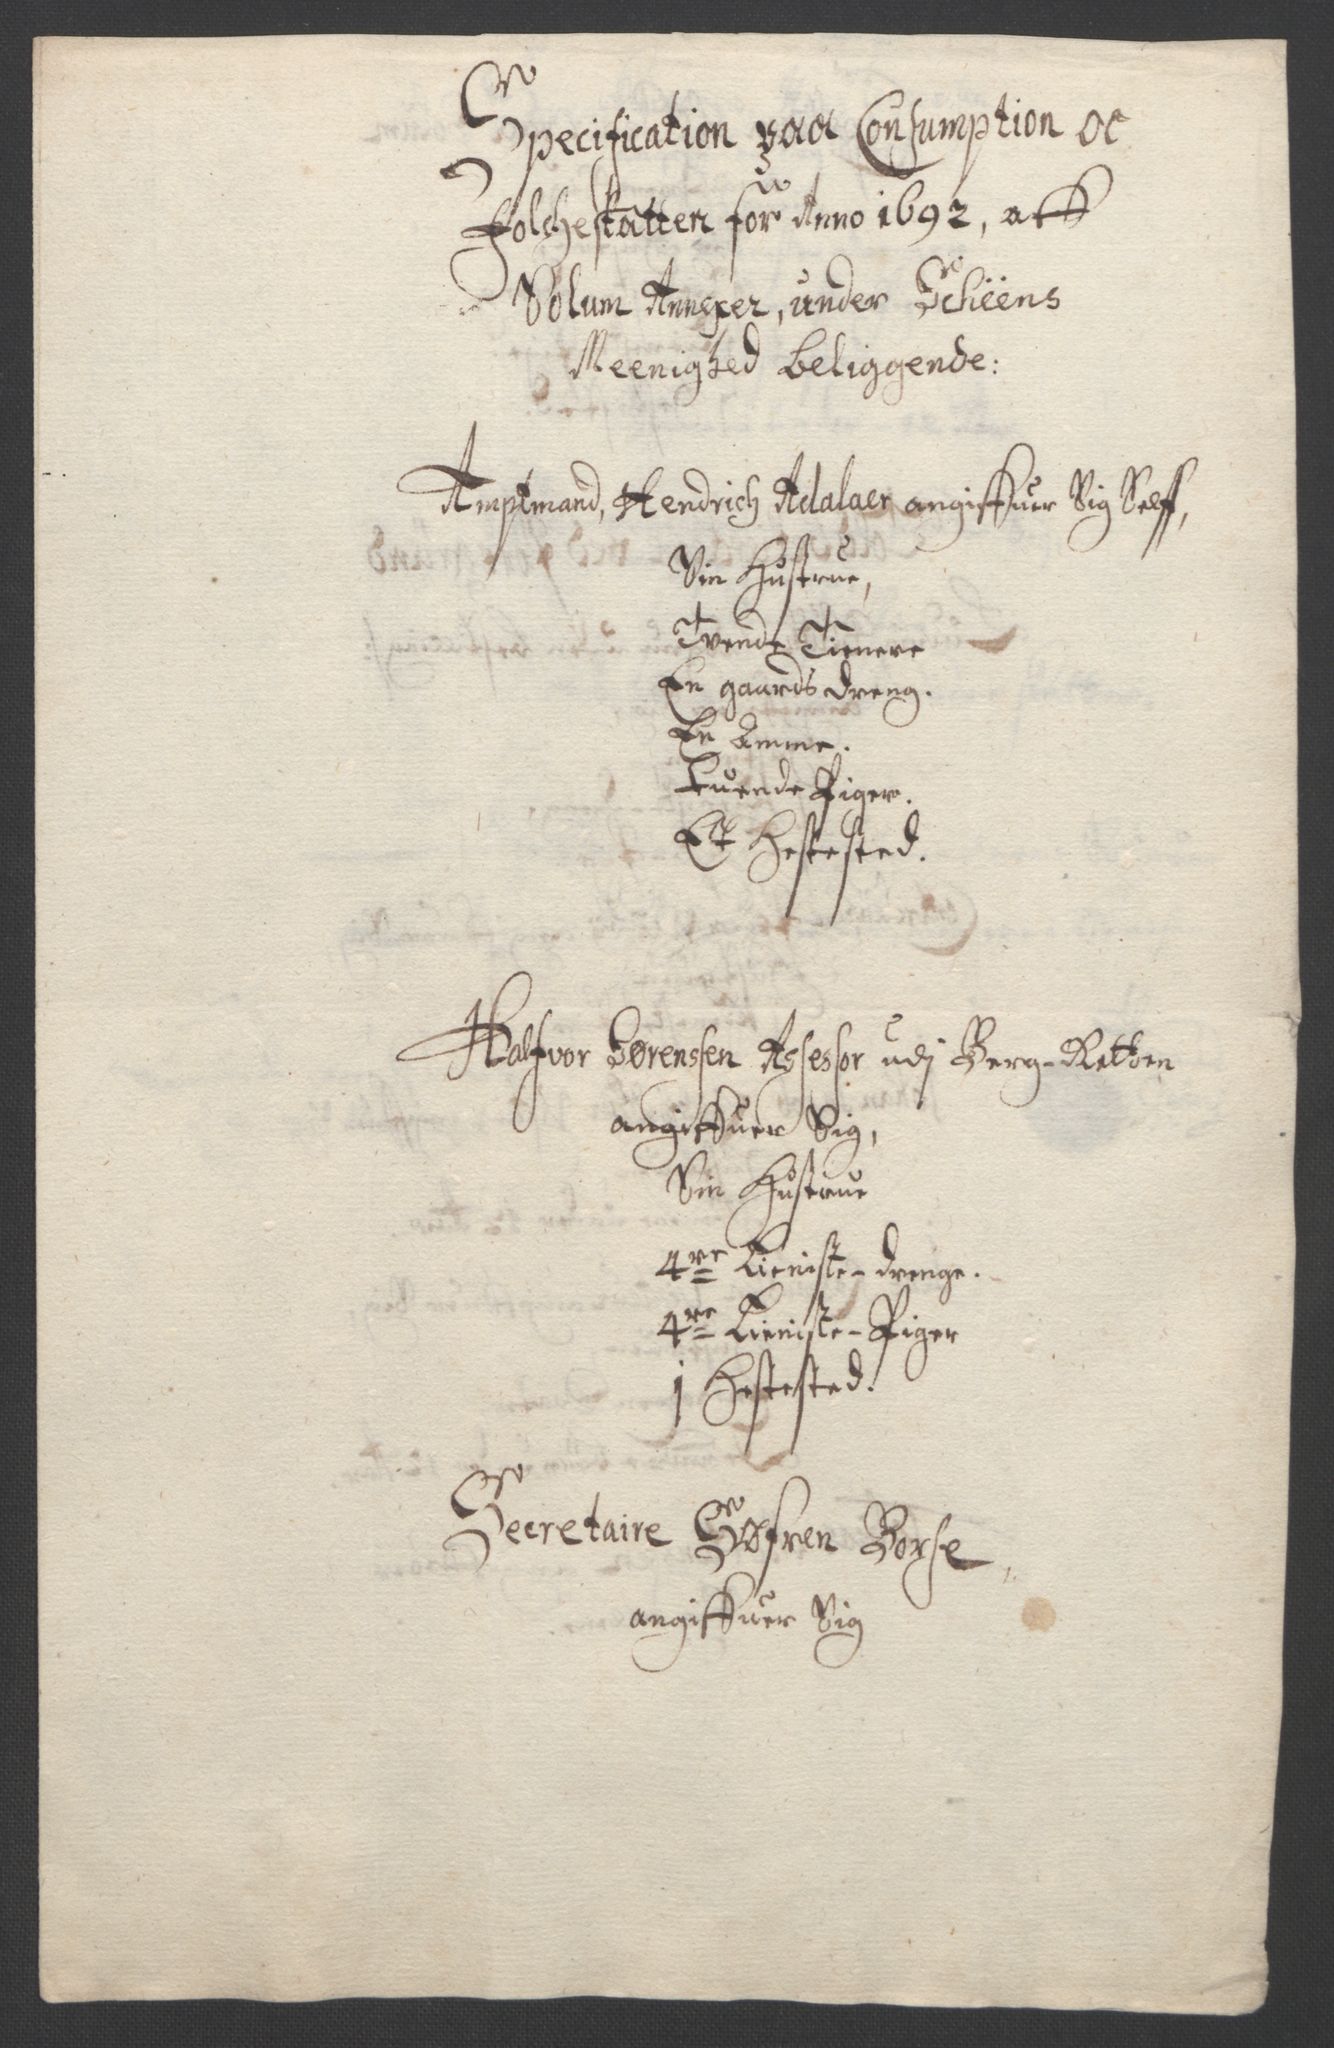 Specification paa Consumption oc
Folcheskatten for Anno 1692, aff
Solum Annexer, under Scheens
Meenighed beliggende:
Amptmand, Hendrich Adalaer angiffuer Sig Self,
Sin Hustrue,
Tvende Tienere
En gaards dreng.
En Amme.
Tuende Piger.
Et Hestested.
Halfvor Sørenssen Assessor udj Berg-Retten
angiffuer Sig,
Sin Hustrue
4re Tieniste-drenge.
4re Tieniste-Piger
j Hestested.
Secretaire Søfren Borse
angiffuer Sig